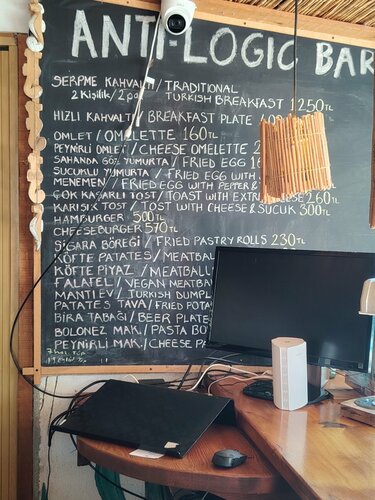 ANTI-LOGIC BAR
SERPME KAHVALTI / TRADITIONAL
2 Kişilik / 2 pax TURKISH BREAKFAST 1250TL
HIZLI KAHVALTI / BREAKFAST PLATE
OMLET / OMELETTE 160TL
PEYNİRLİ OMLET / CHEESE OMELETTE
SAHANDA GÖZ YUMURTA / FRIED EGG
SUCUKLU YUMURTA / FRIED EGG WITH
MENEMEN / FRIED EGG WITH PEPPER &
ÇOK KAŞARLI TOST / TOAST WITH EXTRA CHEESE 260TL
KARIŞIK TOST / TOST WITH CHEESE & SUCUK 300TL
HAMBURGER 500TL
CHEESEBURGER 570TL
SİGARA BÖREĞİ / FRIED PASTRY ROLLS 230TL
KÖFTE PATATES / MEATBAL
KÖFTE PİYAZ / MEATBALL
FALAFEL / VEGAN MEATBA
MANTI EV / TURKISH DUMPL
PATATES TAVA / FRIED POTA
BİRA TABAĞI / BEER PLATE
BOLONEZ MAK. / PASTA BO
PEYNİRLİ MAK. / CHEESE PA